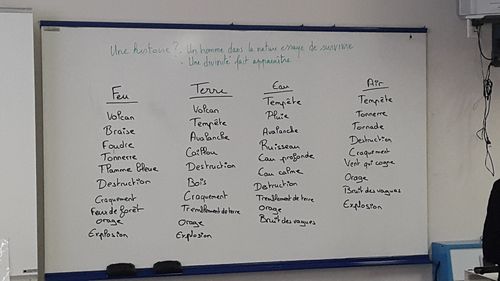 Une histoire ? . Un homme dans la nature essaye de survivre
. Une divinité fait apparaître
Feu
Volcan
Braise
Foudre
Tonnerre
Flamme bleue
Destruction
Craquement
Feux de forêt
Orage
Explosion
Terre
Volcan
Tempête
Avalanche
Caillou
Destruction
Bois
Craquement
Tremblement de terre
Orage
Explosion
Eau
Tempête
Pluie
Avalanche
Ruisseau
Eau profonde
Eau calme
Destruction
Tremblement de terre
Orage
Bruit des vagues
Air
Tempête
Tonnerre
Tornade
Destruction
Craquement
Vent qui cogne
Orage
Bruit des vagues
Explosion